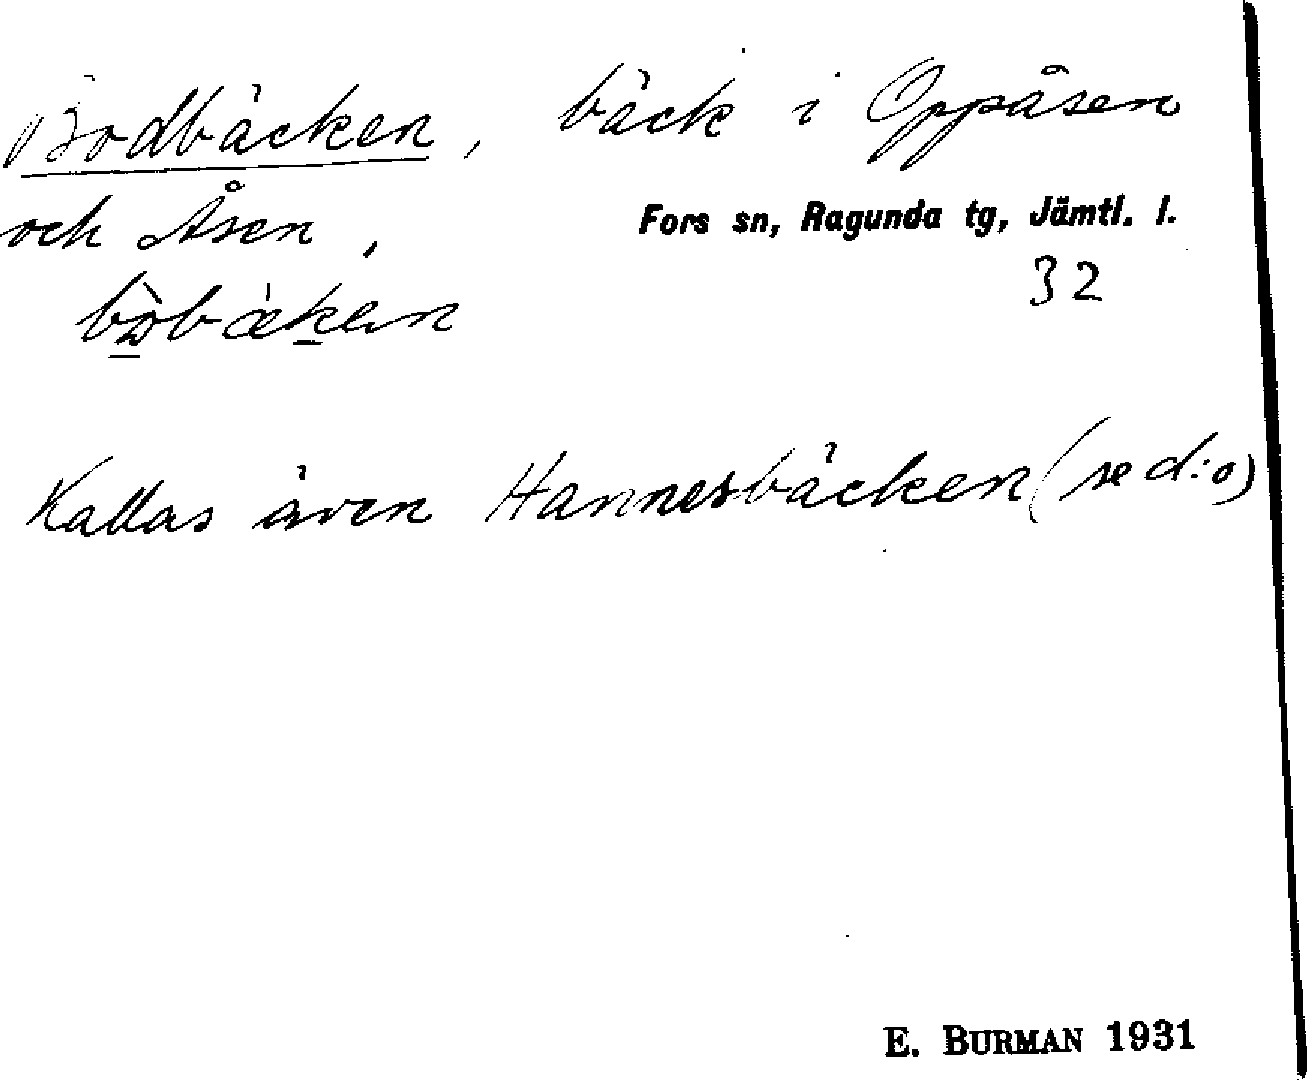 Bodbäcken, bäck i Oppåsen
och Åsen,
Fors sn, Ragunda tg, Jämtl. l.
32
Kallas även Hannesbäcken (se d:o)
E. BURMAN 1931